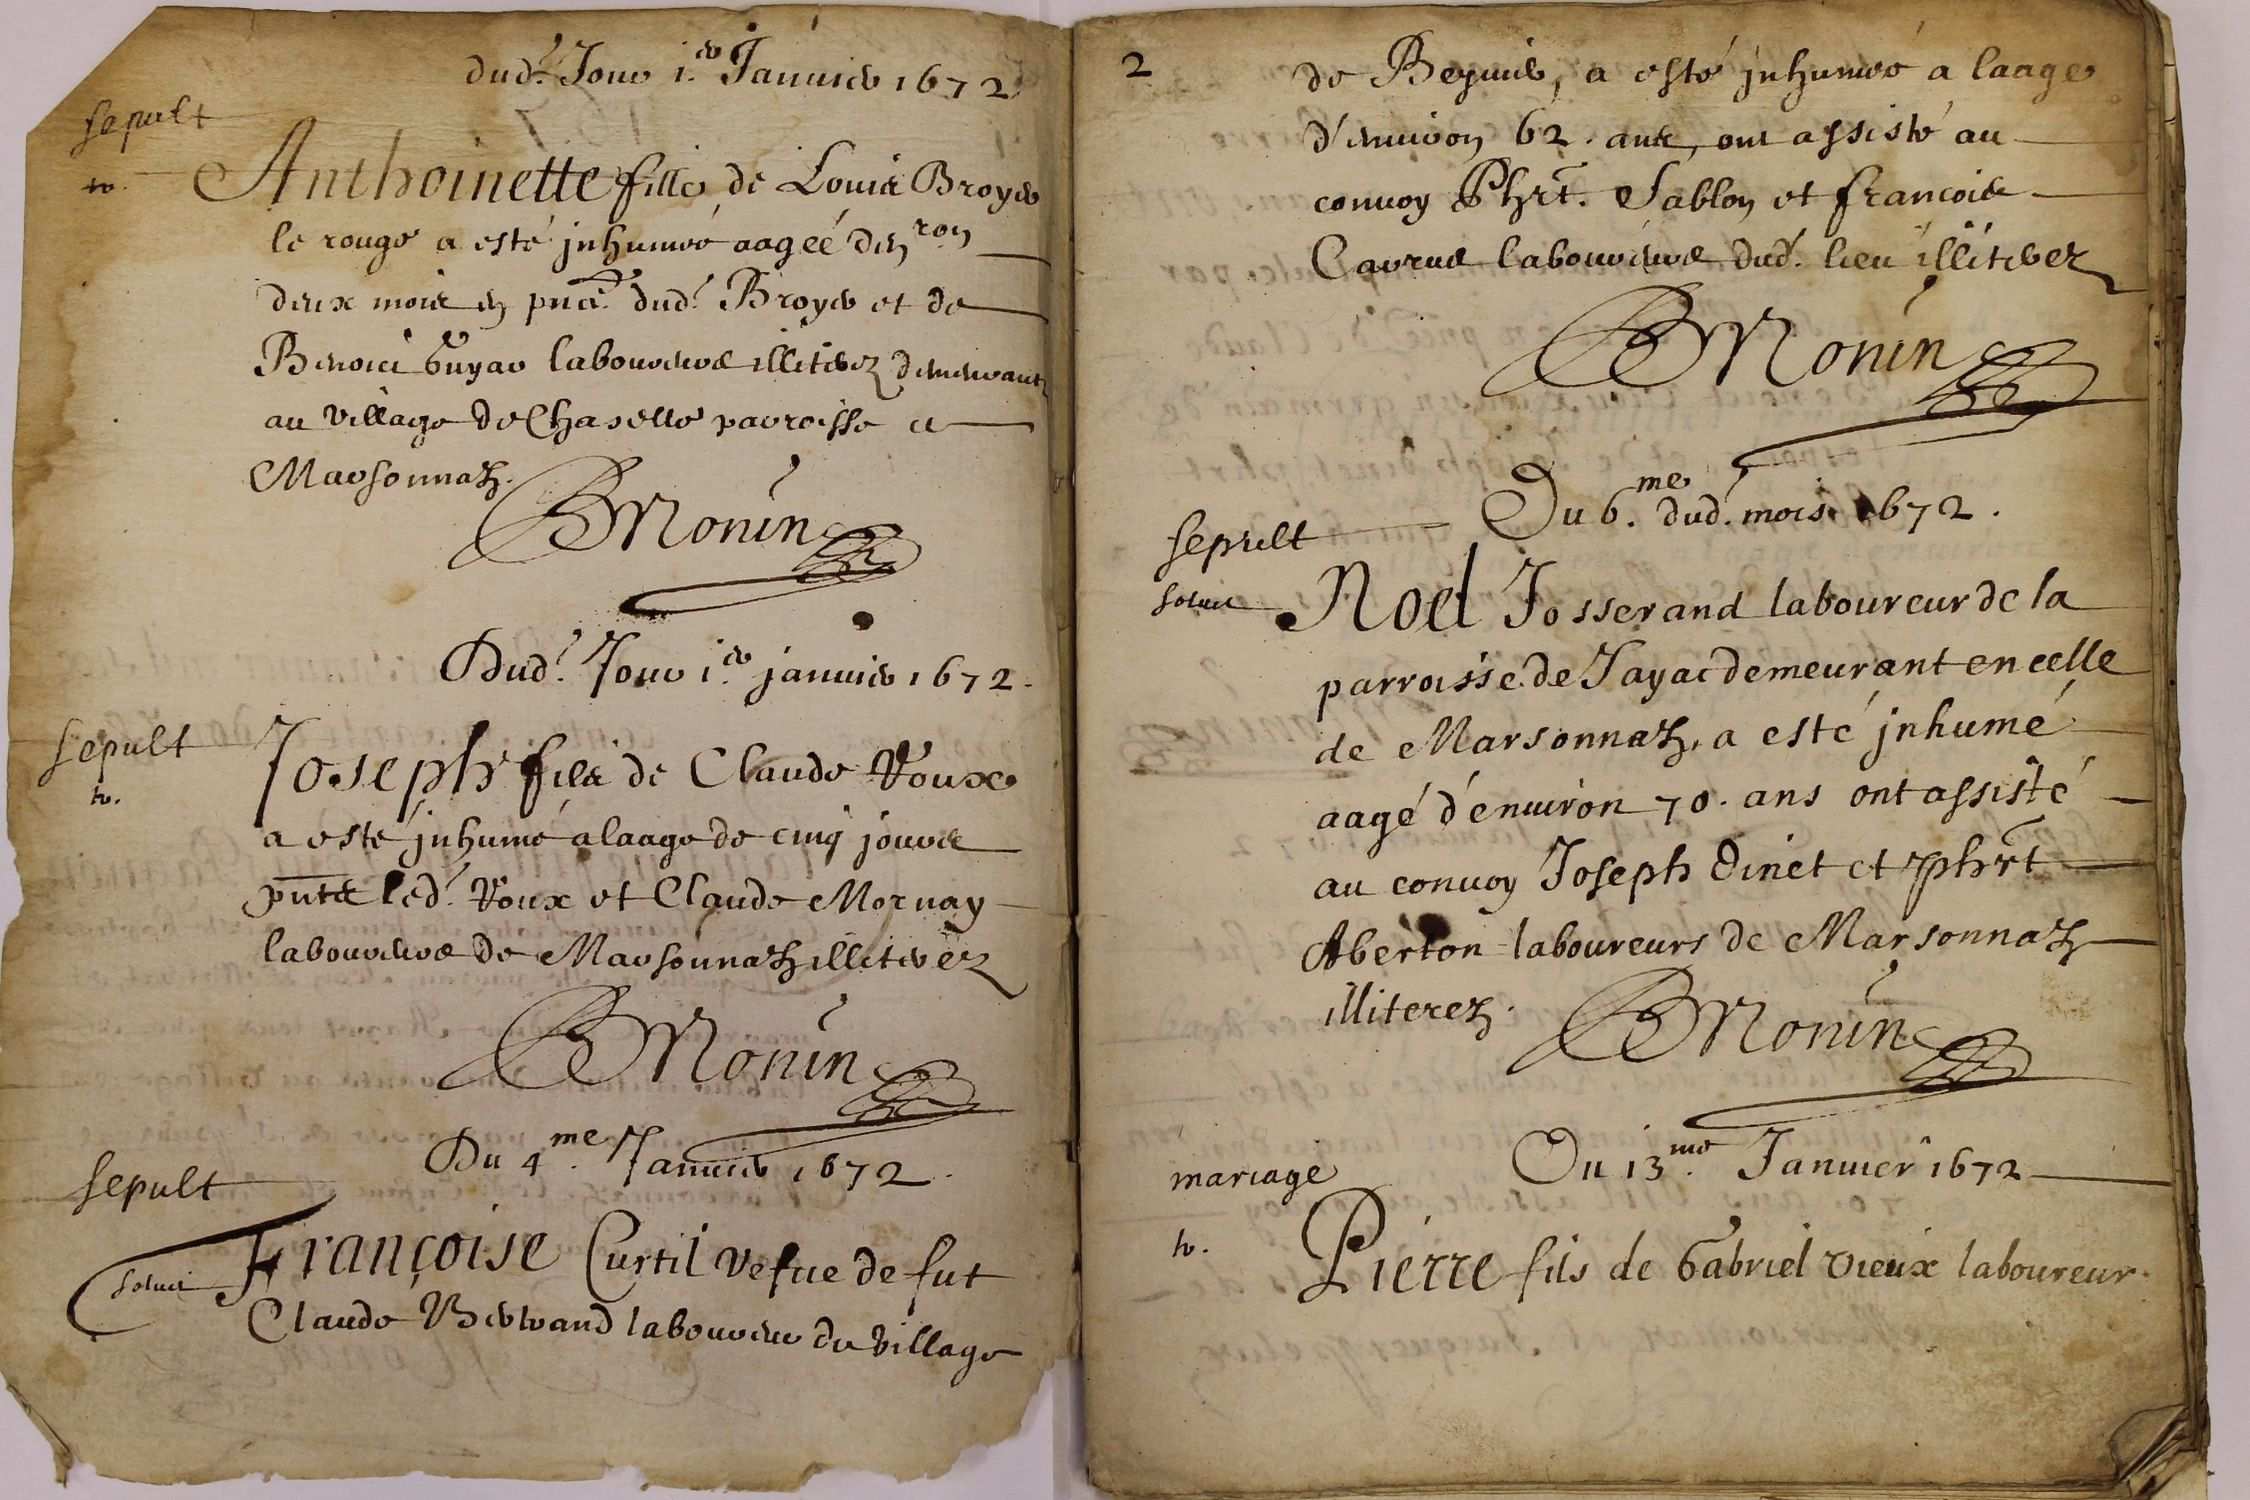 dud.t Jour 1.er Januier 1672
sepult
Anthoinette fille de Louis Broyer
le rouge a esté jnhumeé aageé den ron
deux mois en pnce. dud.t Broyer et de
Benoict Guyar laboureurs illiterez demeurants
au village de Chaselle parroisse a
Marsonnaz.
BMonin
Dud.t Jour 1.er januier 1672.
sepult
Joseph fils de Claude Roux
a esté jnhumé a laage de cinq jours
pnts led.t Roux et Claude Mornay
laboureurs de Marsonnaz illiterez
BMonin
Du 4.me Januier 1672.
sepult
Françoise Curtil vefue de fut
soluit
Claude Bertrand laboureur du village
2
de Beyuier, a esté jnhumeé a laage
d'enuiron 62. ans, ont assisté au
conuoy Phrt. Sablon et francois
Carrue laboureurs dud.t lieu illiterez
BMonin
Du 6.me dud.t mois 1672.
sepult
soluit
Noel Josserand laboureur de la
parroisse de Jayac demeurant en celle
de Marsonnaz, a esté jnhumé
aagé d'enuiron 70. ans ont assisté
au conuoy Joseph Dinet et Phrt
Aberton laboureurs de Marsonnaz
illiterez.
BMonin
Du 13.me Januier 1672
mariage
Pierre fils de Gabriel vieux laboureur.